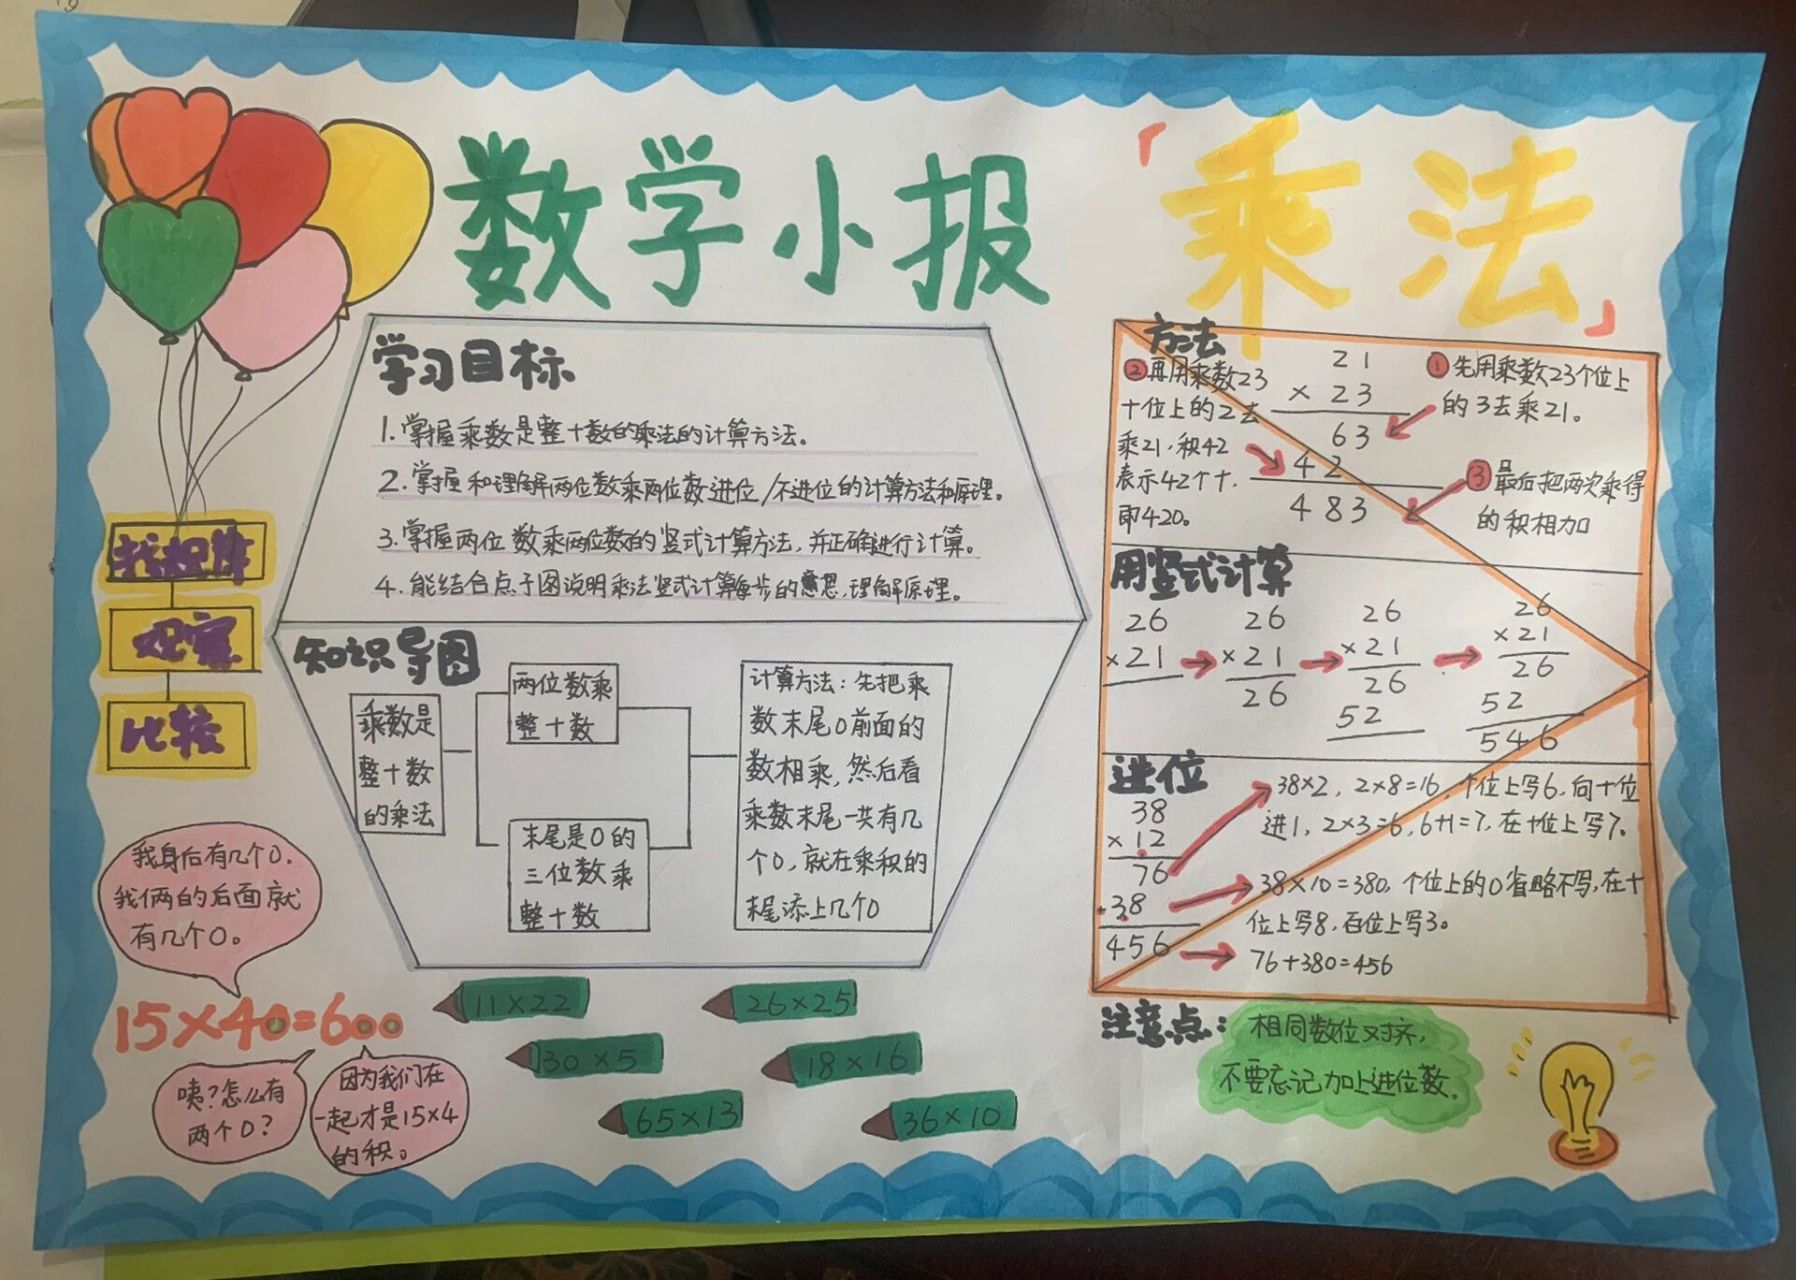 数学小报
「乘法」
学习目标
1.掌握乘数是整十数的乘法的计算方法。
2.掌握和理解两位数乘两位数进位/不进位的计算方法和原理。
3.掌握两位数乘两位数的竖式计算方法,并正确进行计算。
4.能结合点子图说明乘法竖式计算每步的意思,理解原理。
找规律
观察
比较
知识导图
乘数是
整十数
的乘法
两位数乘
整十数
末尾是0的
三位数乘
整十数
计算方法:先把乘
数末尾0前面的
数相乘,然后看
乘数末尾一共有几
个0,就在乘积的
末尾添上几个0
我身后有几个0,
我俩的后面就
有几个0。
15×40=600
咦?怎么有
两个0?
因为我们在
一起才是15×4
的积。
11×22
26×25
30×5
18×16
65×13
36×10
方法
②再用乘数23
十位上的2去
乘21,积42
表示42个十.
即420。
21
×23
63
42
483
①先用乘数23个位上
的3去乘21。
③最后把两次乘得
的积相加
用竖式计算
26
×21
26
×21
26
26
×21
26
52
26
×21
26
52
546
进位
38
×12
76
38
456
38×2,2×8=16,个位上写6,向十位
进1,2×3=6,6+1=7,在十位上写7。
38×10=380,个位上的0省略不写,在十
位上写8,百位上写3。
76+380=456
注意点:
相同数位对齐,
不要忘记加上进位数.